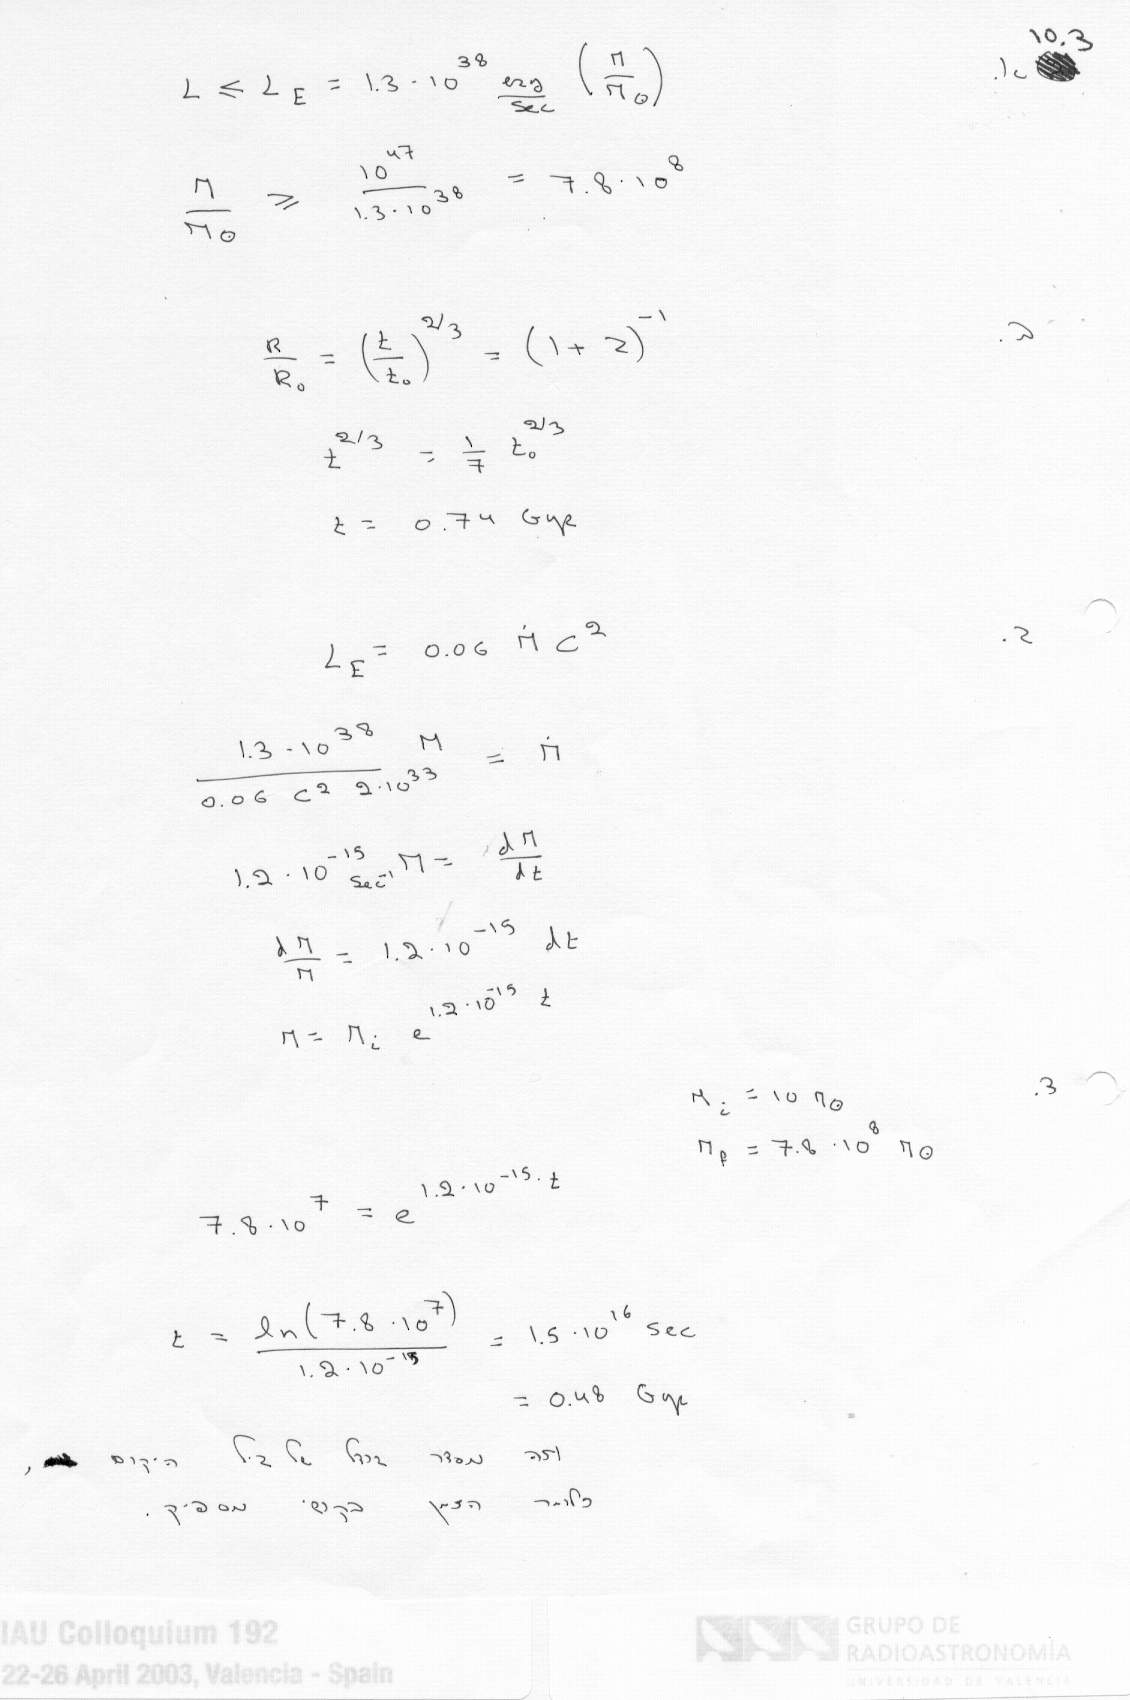 10.3
א.
L ≤ L_E = 1.3 · 10^38 erg/sec (M/M⊙)
M/M⊙ ≥ 10^47 / 1.3 · 10^38 = 7.8 · 10^8
ב.
R/R₀ = (t/t₀)^2/3 = (1 + z)^-1
t^2/3 = 1/7 t₀^2/3
t = 0.74 Gyr
ג.
L_E = 0.06 Ṁ c^2
1.3 · 10^38 M / 0.06 c^2 2 · 10^33 = Ṁ
1.2 · 10^-15 sec^-1 M = dM/dt
dM/M = 1.2 · 10^-15 dt
M = M_i e^1.2 · 10^-15 t
ד.
M_i = 10 M⊙
M_f = 7.8 · 10^8 M⊙
7.8 · 10^7 = e^1.2 · 10^-15 · t
t = ln(7.8 · 10^7) / 1.2 · 10^-15 = 1.5 · 10^16 sec
= 0.48 Gyr
וזה מסדר גודל של גיל היקום,
כלומר הזמן בקושי מספיק.
IAU Colloquium 192
22-26 April 2003, Valencia - Spain
GRUPO DE
RADIOASTRONOMÍA
UNIVERSIDAD DE VALENCIA